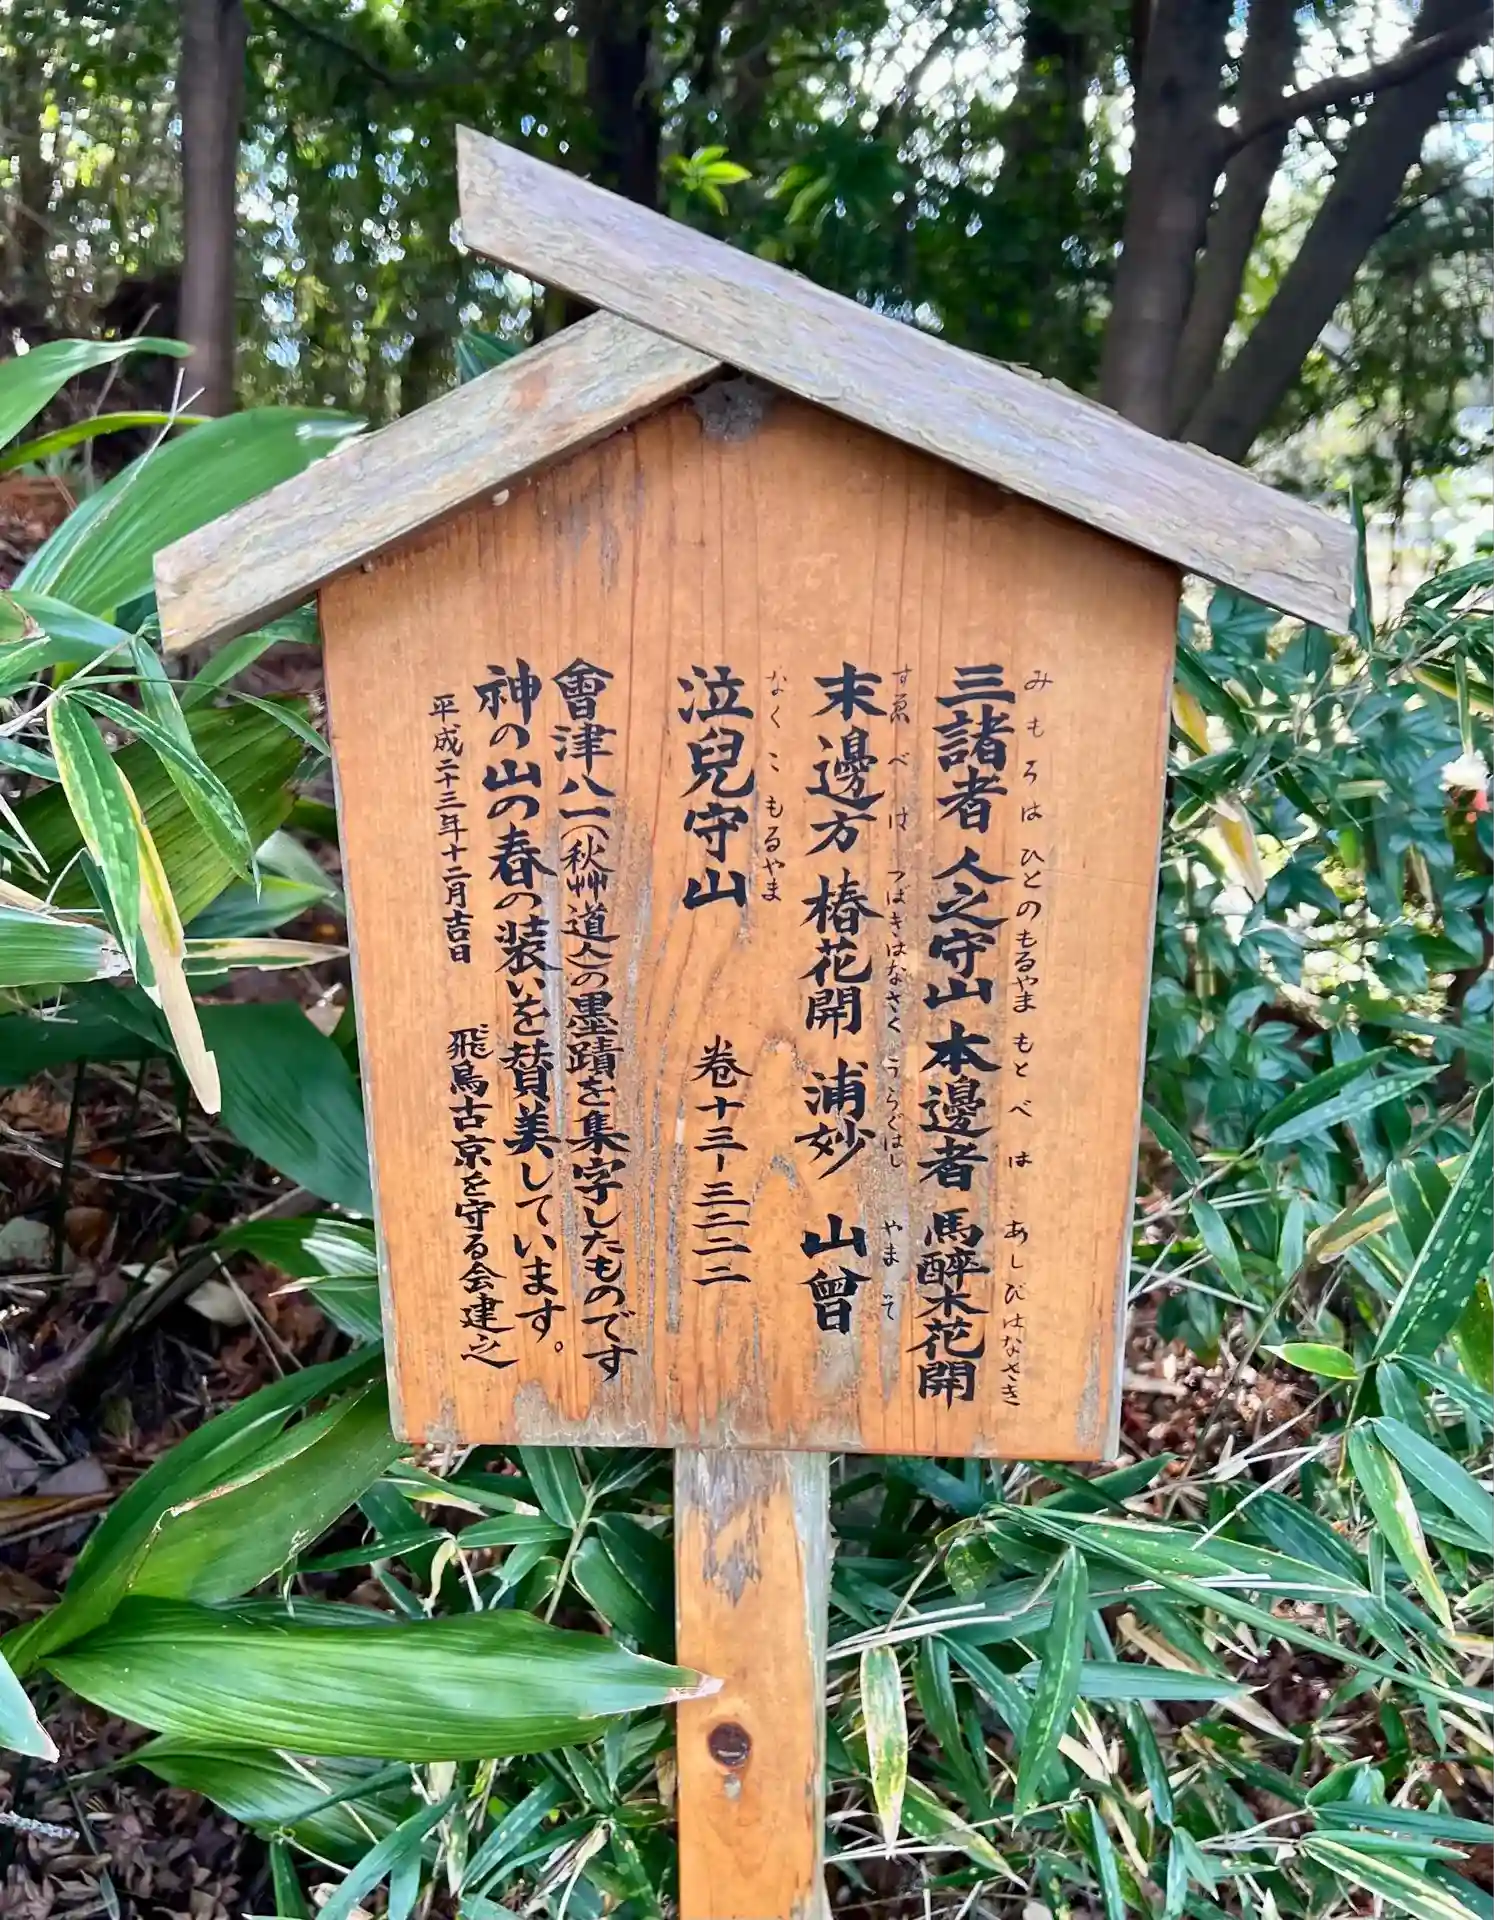 三諸者 人之守山 本邊者 馬醉木花開
みもろは ひとのもるやま もとべは あしびはなさき
末邊方 椿花開 浦妙 山曽
すゑべは つばきはなさく うらぐはし やまそ
泣兒守山
なくこもるやま
巻十三-三二二二
會津八一(秋艸道人)の墨蹟を集字したものです
神の山の春の装いを賛美しています。
平成二十三年十二月吉日 飛鳥古京を守る会建之